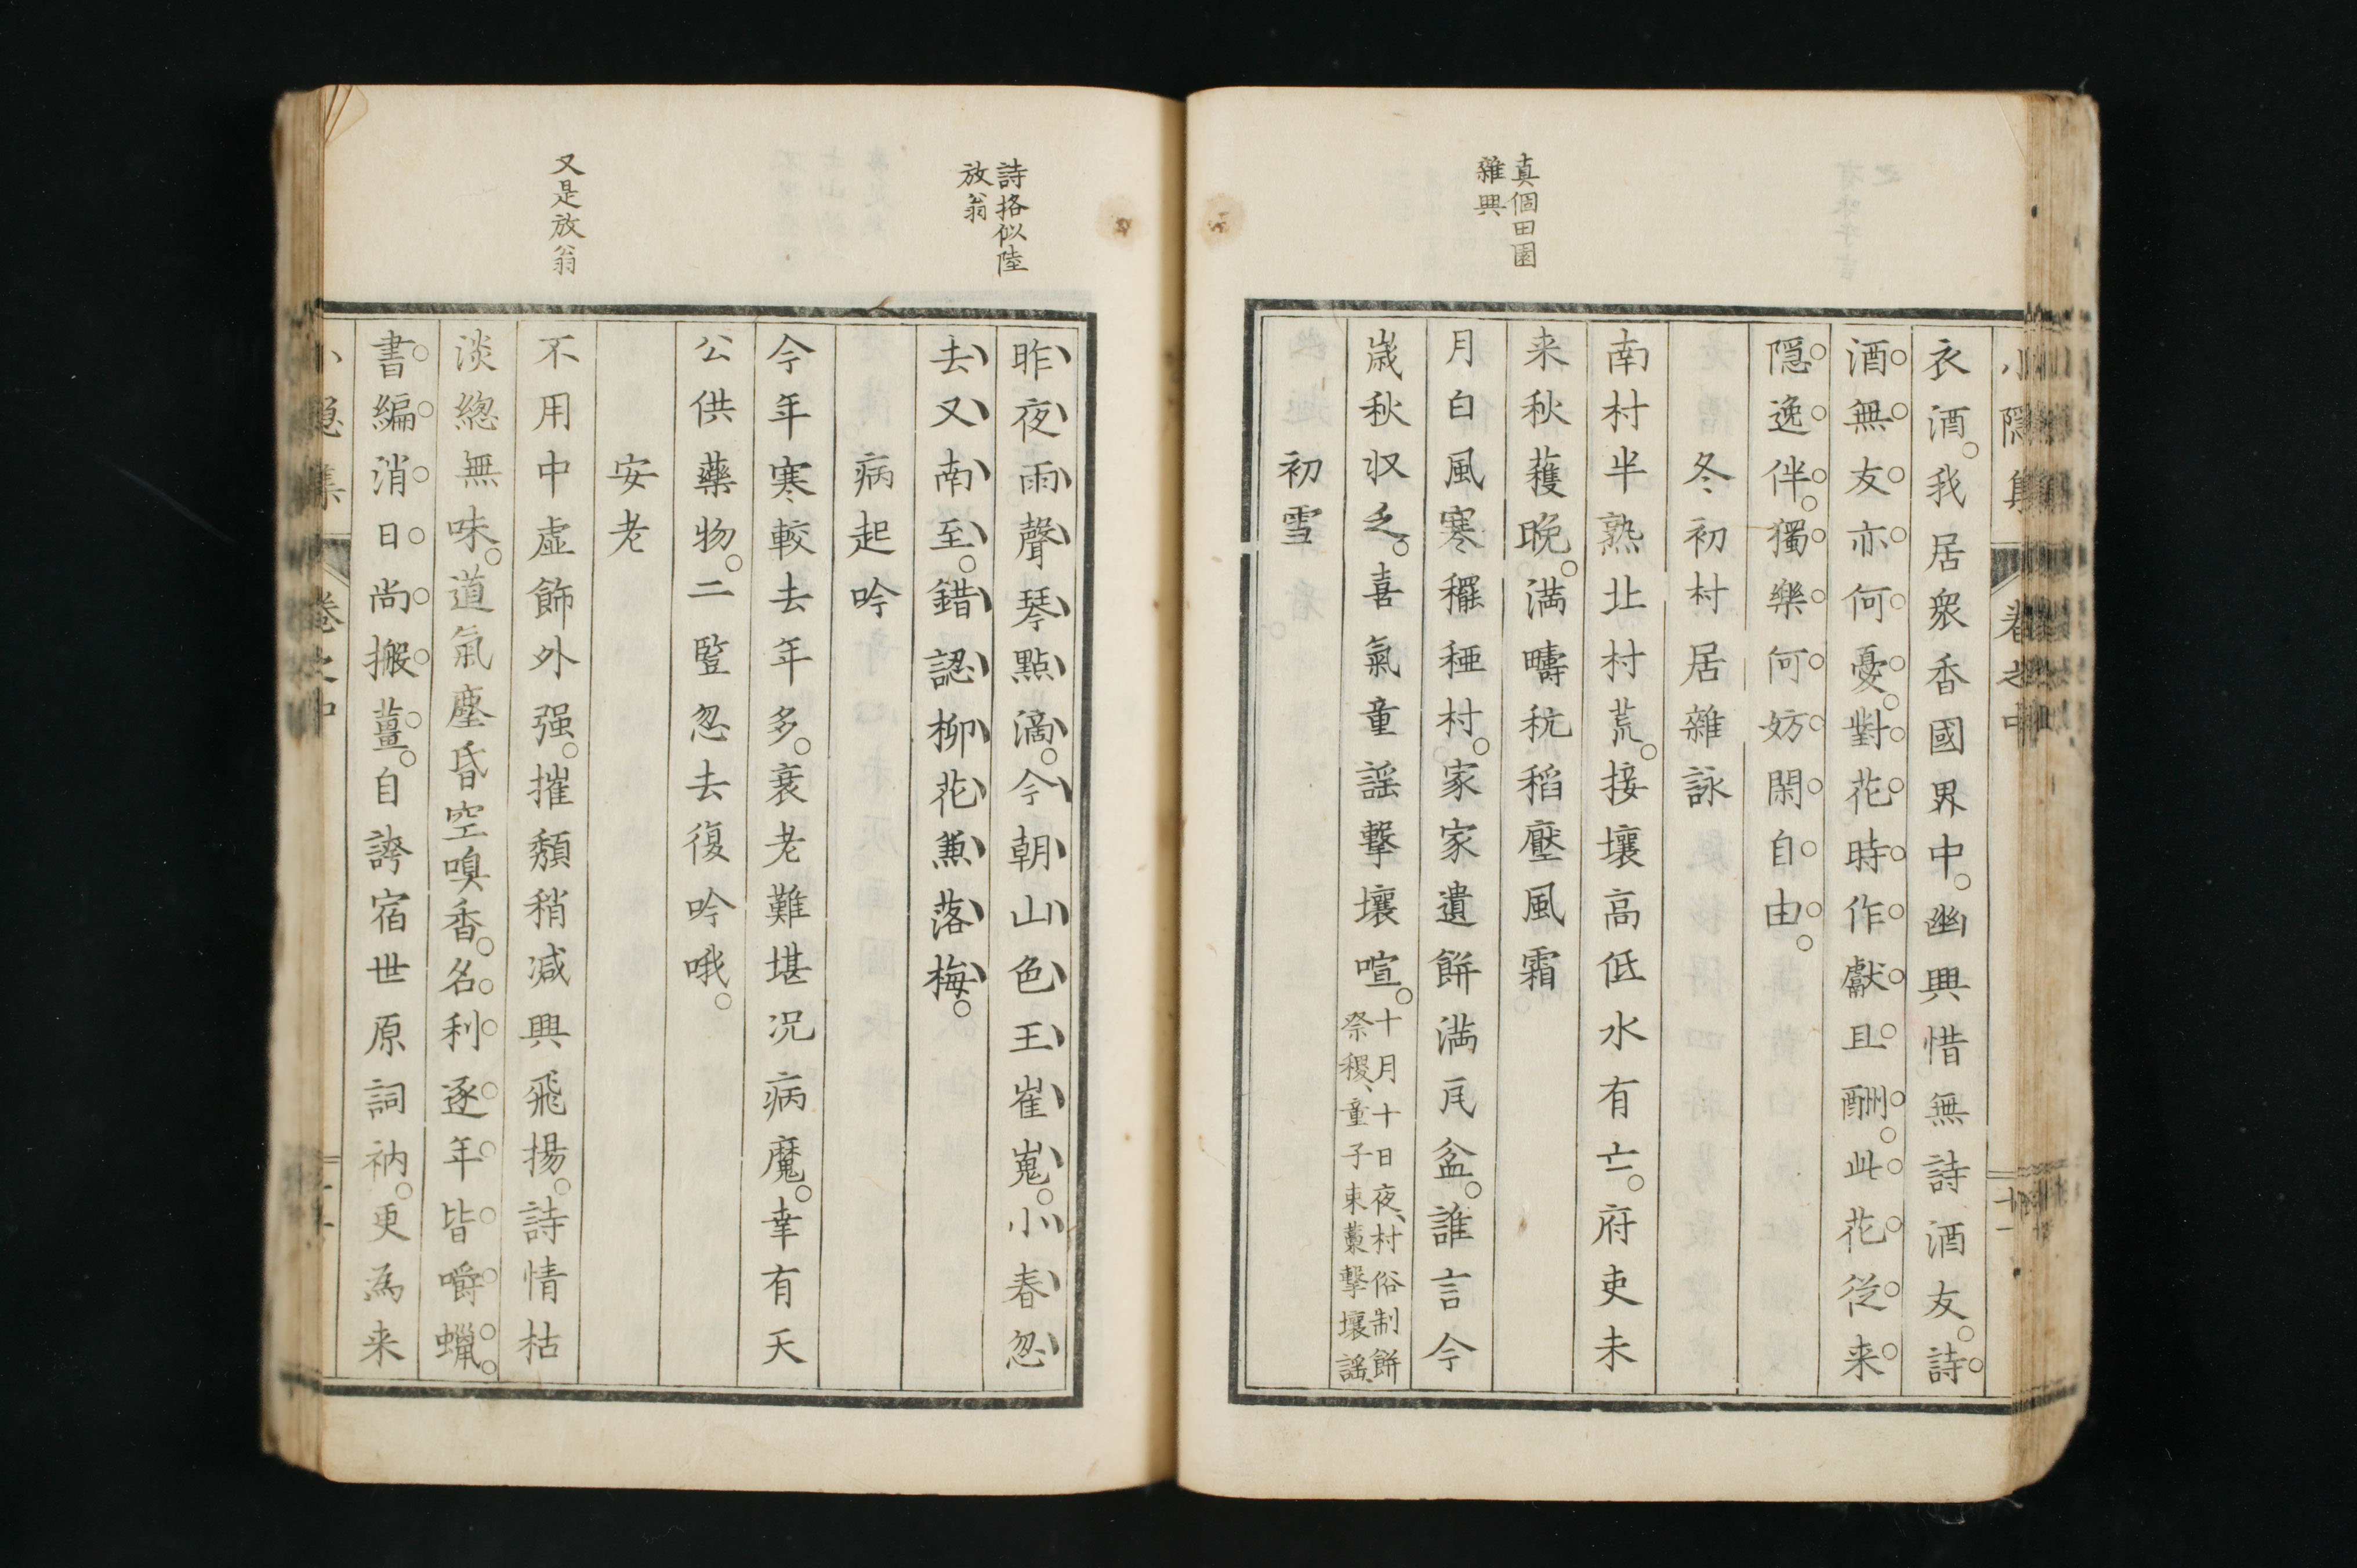 小隱集 卷之中 十一
衣酒。我居衆香國界中。幽興惜無詩酒友。詩
酒無友亦何憂。對花時作獻且酬。此花從来
隠逸伴。獨樂何妨閑自由。
冬初村居雜詠
南村半熟北村荒。接壤高低水有亡。府吏未
来秋蓷晩。満疇秔稻壓風霜
真個田園
雜興
月白風寒䆉稏村。家家遺餅満瓦盆。誰言今
歳秋収乏。喜氣童謡撃壤喧。十月十日夜、村俗制餅
祭稷、童子束藁撃壤謡、
初雪
詩挌似陸
放翁
昨夜雨聲琴點滴。今朝山色玉崔嵬。小春忽
去又南至。錯認柳花兼落梅。
病起吟
今年寒較去年多。衰老難堪况病魔。幸有天
公供藥物。二豎忽去復吟哦。
安老
又是放翁
不用中虚飾外强。摧頽稍减興飛揚。詩情枯
淡總無味。道氣塵昏空嗅香。名利逐年皆嚼蠟。
書編消日尚搬薑。自誇宿世原詞衲。更為来
小隠集 卷之中